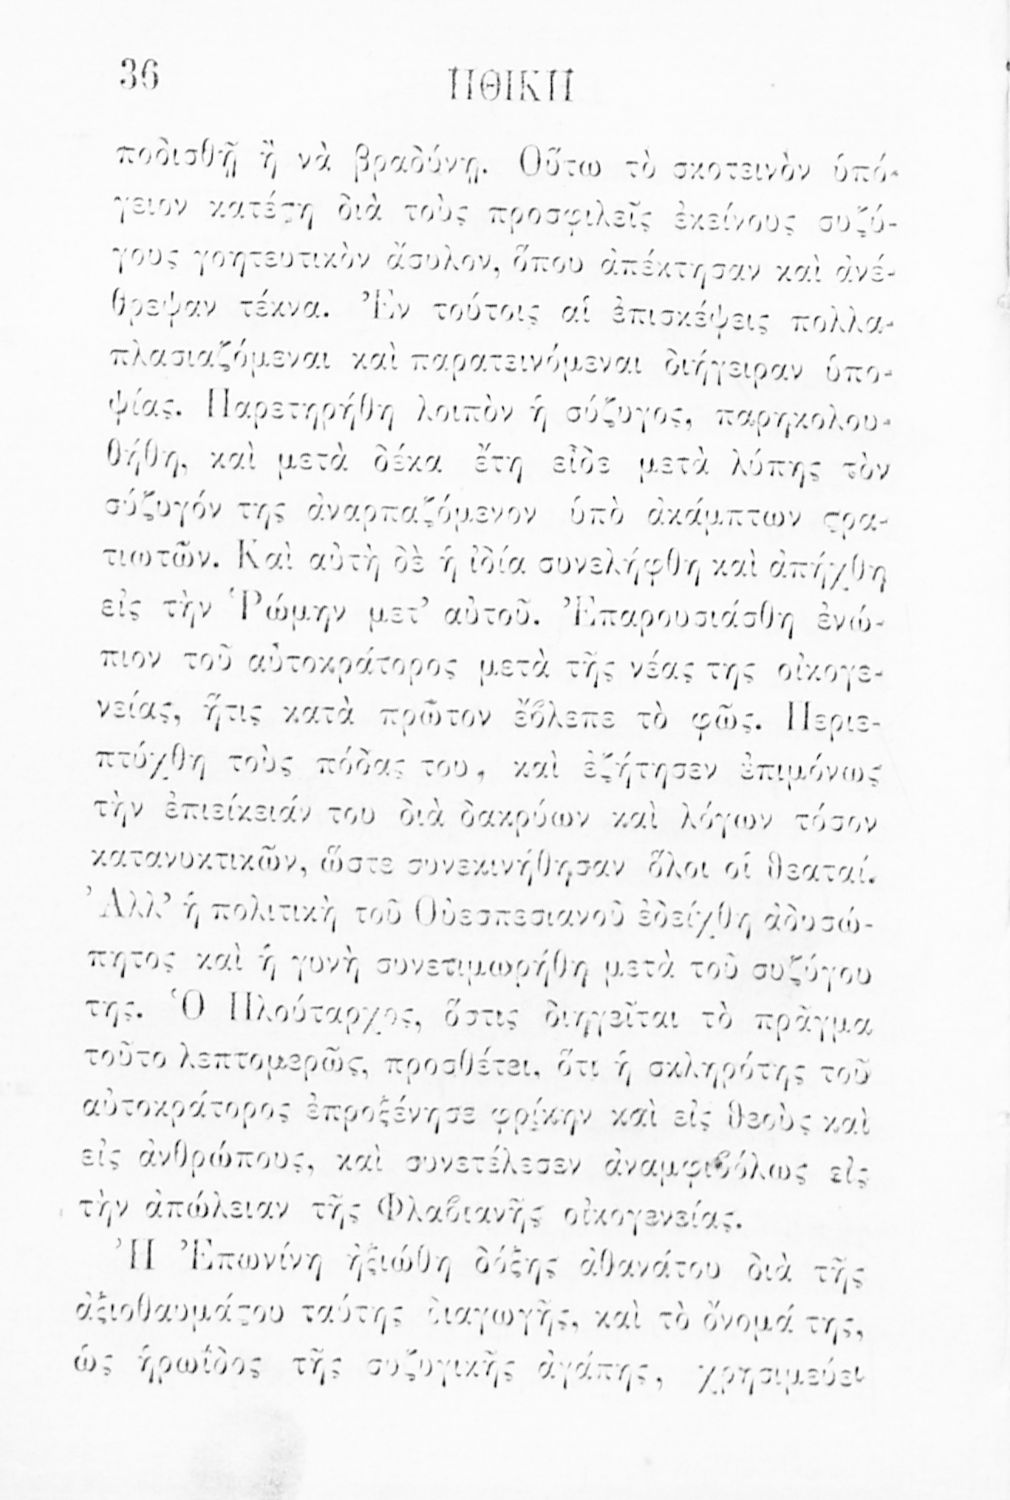 36
ΗΘΙΚΗ
ποδισθῇ ἢ νὰ βραδύνῃ. Οὕτω τὸ σκοτεινὸν ὑπό-
γειον κατέϛη διὰ τοὺς προσφιλεῖς ἐκείνους συζύ-
γους γοητευτικὸν ἄσυλον, ὅπου ἀπέκτησαν καὶ ἀνέ-
θρεψαν τέκνα. Ἐν τούτοις αἱ ἐπισκέψεις πολλα-
πλασιαζόμεναι καὶ παρατεινόμεναι διήγειραν ὑπο-
ψίας. Παρετηρήθη λοιπὸν ἡ σύζυγος, παρηκολου-
θήθη, καὶ μετὰ δέκα ἔτη εἶδε μετὰ λύπης τὸν
σύζυγόν της ἀναρπαζόμενον ὑπὸ ἀκάμπτων ϛρα-
τιωτῶν. Καὶ αὐτὴ δὲ ἡ ἰδία συνελήφθη καὶ ἀπήχθη
εἰς τὴν Ῥώμην μετ’ αὐτοῦ. Ἐπαρουσιάσθη ἐνώ-
πιον τοῦ αὐτοκράτορος μετὰ τῆς νέας της οἰκογε-
νείας, ἥτις κατὰ πρῶτον ἔϐλεπε τὸ φῶς. Περιε-
πτύχθη τοὺς πόδας του, καὶ ἐζήτησεν ἐπιμόνως
τὴν ἐπιείκειάν του διὰ δακρύων καὶ λόγων τόσον
κατανυκτικῶν, ὥστε συνεκινήθησαν ὅλοι οἱ θεαταί.
Ἀλλ’ ἡ πολιτικὴ τοῦ Οὐεσπεσιανοῦ ἐδείχθη ἀδυσώ-
πητος καὶ ἡ γυνὴ συνετιμωρήθη μετὰ τοῦ συζύγου
της. Ὁ Πλούταρχος, ὅστις διηγεῖται τὸ πρᾶγμα
τοῦτο λεπτομερῶς, προσθέτει, ὅτι ἡ σκληρότης τοῦ
αὐτοκράτορος ἐπροξένησε φρίκην καὶ εἰς θεοὺς καὶ
εἰς ἀνθρώπους, καὶ συνετέλεσεν ἀναμφιϐόλως εἰς
τὴν ἀπώλειαν τῆς Φλαϐιανῆς οἰκογενείας.
Ἡ Ἐπωνίνη ἠξιώθη δόξης ἀθανάτου διὰ τῆς
ἀξιοθαυμάϛου ταύτης διαγωγῆς, καὶ τὸ ὄνομά της,
ὡς ἡρωΐδος τῆς συζυγικῆς ἀγάπης, χρησιμεύει